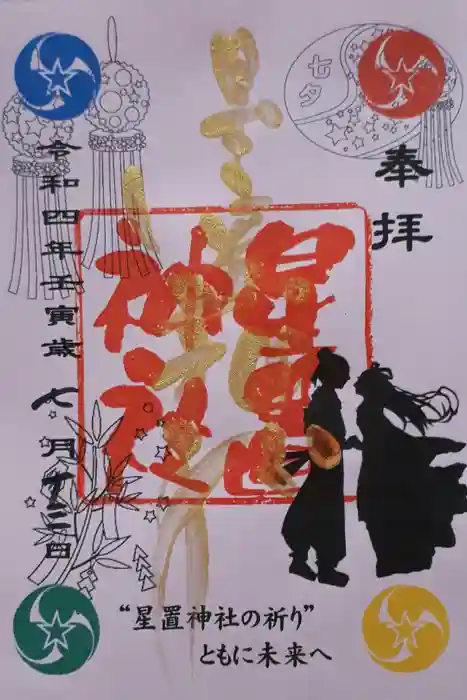 奉拝
七夕
星置
神社
令和四年壬寅歳 七月十三日
“星置神社の祈り”
ともに未来へ